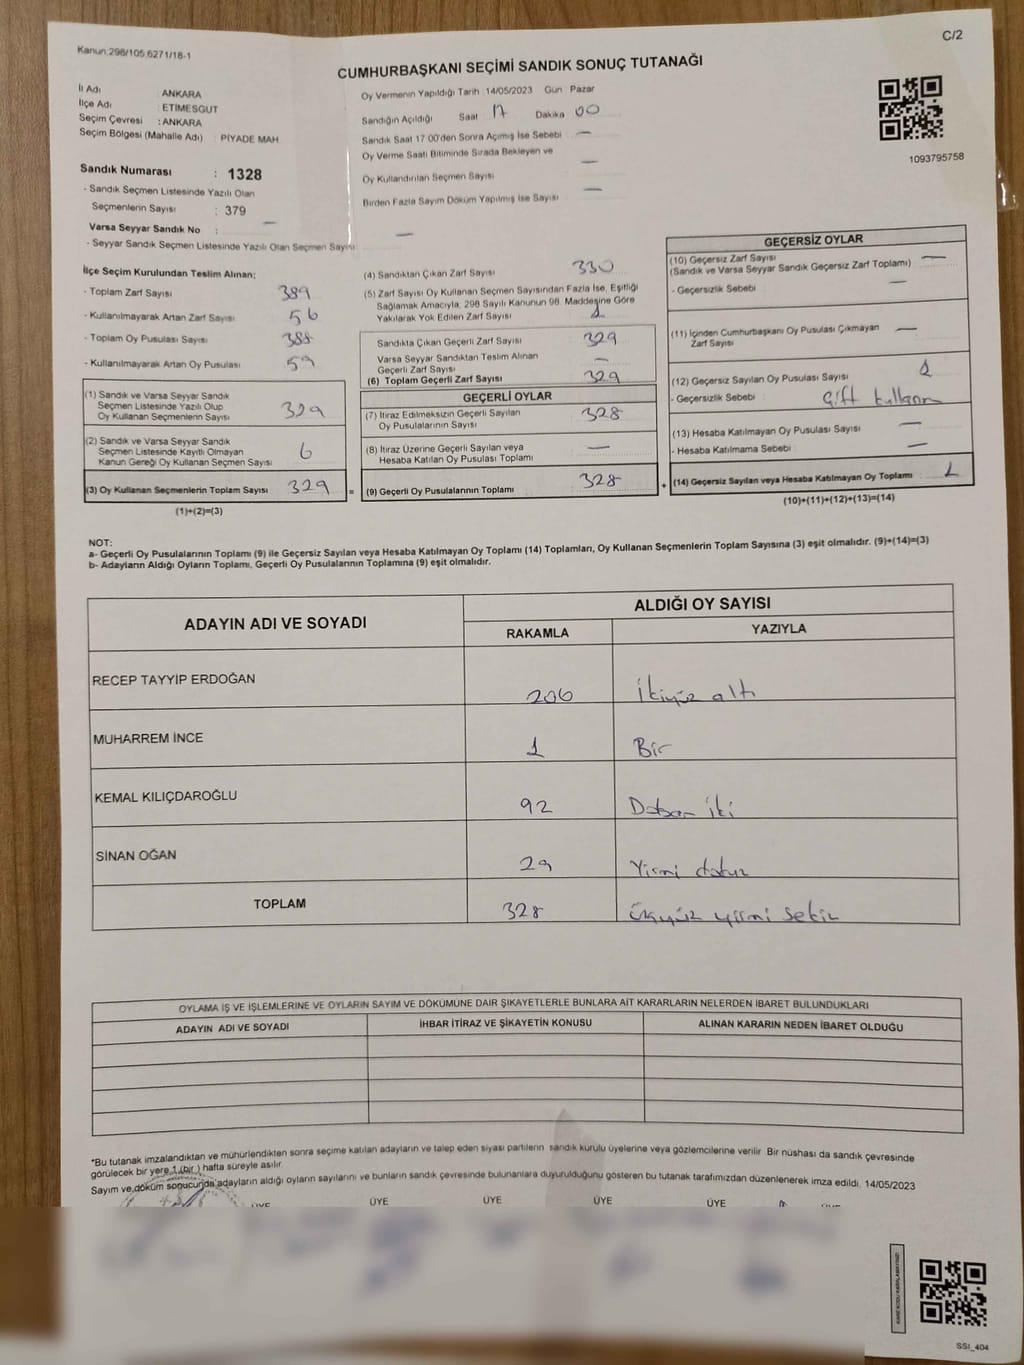 Kanun:298/105,6271/18-1
C/2
CUMHURBAŞKANI SEÇİMİ SANDIK SONUÇ TUTANAĞI
İl Adı : ANKARA
İlçe Adı : ETİMESGUT
Seçim Çevresi : ANKARA
Seçim Bölgesi (Mahalle Adı) : PİYADE MAH.
Sandık Numarası : 1328
- Sandık Seçmen Listesinde Yazılı Olan
Seçmenlerin Sayısı : 379
Varsa Seyyar Sandık No : —
- Seyyar Sandık Seçmen Listesinde Yazılı Olan Seçmen Sayısı —
Oy Vermenin Yapıldığı Tarih :14/05/2023 Gün Pazar
Sandığın Açıldığı Saat 17 Dakika 00
Sandık Saat 17:00'den Sonra Açımış İse Sebebi —
Oy Verme Saati Bitiminde Sırada Bekleyen ve
Oy Kullandırılan Seçmen Sayısı —
Birden Fazla Sayım Döküm Yapılmış İse Sayısı —
1093795758
İlçe Seçim Kurulundan Teslim Alınan;
- Toplam Zarf Sayısı 389
- Kullanılmayarak Artan Zarf Sayısı 56
- Toplam Oy Pusulası Sayısı 388
- Kullanılmayarak Artan Oy Pusulası 59
(1) Sandık ve Varsa Seyyar Sandık
Seçmen Listesinde Yazılı Olup
Oy Kullanan Seçmenlerin Sayısı 329
(2) Sandık ve Varsa Seyyar Sandık
Seçmen Listesinde Kayıtlı Olmayan
Kanun Gereği Oy Kullanan Seçmen Sayısı 6
(3) Oy Kullanan Seçmenlerin Toplam Sayısı 329 =
(1)+(2)=(3)
(4) Sandıktan Çıkan Zarf Sayısı 330
(5) Zarf Sayısı Oy Kullanan Seçmen Sayısından Fazla İse, Eşitliği
Sağlamak Amacıyla, 298 Sayılı Kanunun 98. Maddesine Göre
Yakılarak Yok Edilen Zarf Sayısı 1
Sandıkta Çıkan Geçerli Zarf Sayısı 329
Varsa Seyyar Sandıktan Teslim Alınan
Geçerli Zarf Sayısı —
(6) Toplam Geçerli Zarf Sayısı 329
GEÇERLİ OYLAR
(7) İtiraz Edilmeksizin Geçerli Sayılan
Oy Pusulalarının Sayısı 328
(8) İtiraz Üzerine Geçerli Sayılan veya
Hesaba Katılan Oy Pusulası Toplamı —
(9) Geçerli Oy Pusulalarının Toplamı 328 +
GEÇERSİZ OYLAR
(10) Geçersiz Zarf Sayısı —
(Sandık ve Varsa Seyyar Sandık Geçersiz Zarf Toplamı)
- Geçersizlik Sebebi —
(11) İçinden Cumhurbaşkanı Oy Pusulası Çıkmayan —
Zarf Sayısı
(12) Geçersiz Sayılan Oy Pusulası Sayısı 1
- Geçersizlik Sebebi Çift kullanım
(13) Hesaba Katılmayan Oy Pusulası Sayısı —
- Hesaba Katılmama Sebebi —
(14) Geçersiz Sayılan veya Hesaba Katılmayan Oy Toplamı 1
(10)+(11)+(12)+(13)=(14)
NOT:
a- Geçerli Oy Pusulalarının Toplamı (9) ile Geçersiz Sayılan veya Hesaba Katılmayan Oy Toplamı (14) Toplamları, Oy Kullanan Seçmenlerin Toplam Sayısına (3) eşit olmalıdır. (9)+(14)=(3)
b- Adayların Aldığı Oyların Toplamı, Geçerli Oy Pusulalarının Toplamına (9) eşit olmalıdır.
ADAYIN ADI VE SOYADI
ALDIĞI OY SAYISI
RAKAMLA YAZIYLA
RECEP TAYYİP ERDOĞAN 206 İkiyüz altı
MUHARREM İNCE 1 Bir
KEMAL KILIÇDAROĞLU 92 Doksan iki
SİNAN OĞAN 29 Yirmi dokuz
TOPLAM 328 üçyüz yirmi sekiz
OYLAMA İŞ VE İŞLEMLERİNE VE OYLARIN SAYIM VE DÖKÜMÜNE DAİR ŞİKAYETLERLE BUNLARA AİT KARARLARIN NELERDEN İBARET BULUNDUKLARI
ADAYIN ADI VE SOYADI İHBAR İTİRAZ VE ŞİKAYETİN KONUSU ALINAN KARARIN NEDEN İBARET OLDUĞU
*Bu tutanak imzalandıktan ve mühürlendikten sonra seçime katılan adayların ve talep eden siyasi partilerin sandık kurulu üyelerine veya gözlemcilerine verilir. Bir nüshası da sandık çevresinde
görülecek bir yere 1 (bir ) hafta süreyle asılır.
Sayım ve döküm sonucunda adayların aldığı oyların sayılarını ve bunların sandık çevresinde bulunanlara duyurulduğunu gösteren bu tutanak tarafımızdan düzenlenerek imza edildi. 14/05/2023
ÜYE ÜYE ÜYE ÜYE ÜYE ÜYE
SSİ_404